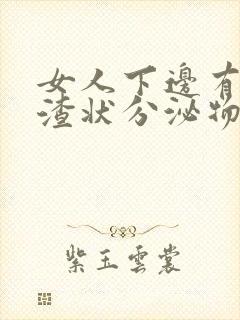 女人下邊有
渣状分泌物
紫玉雲裳